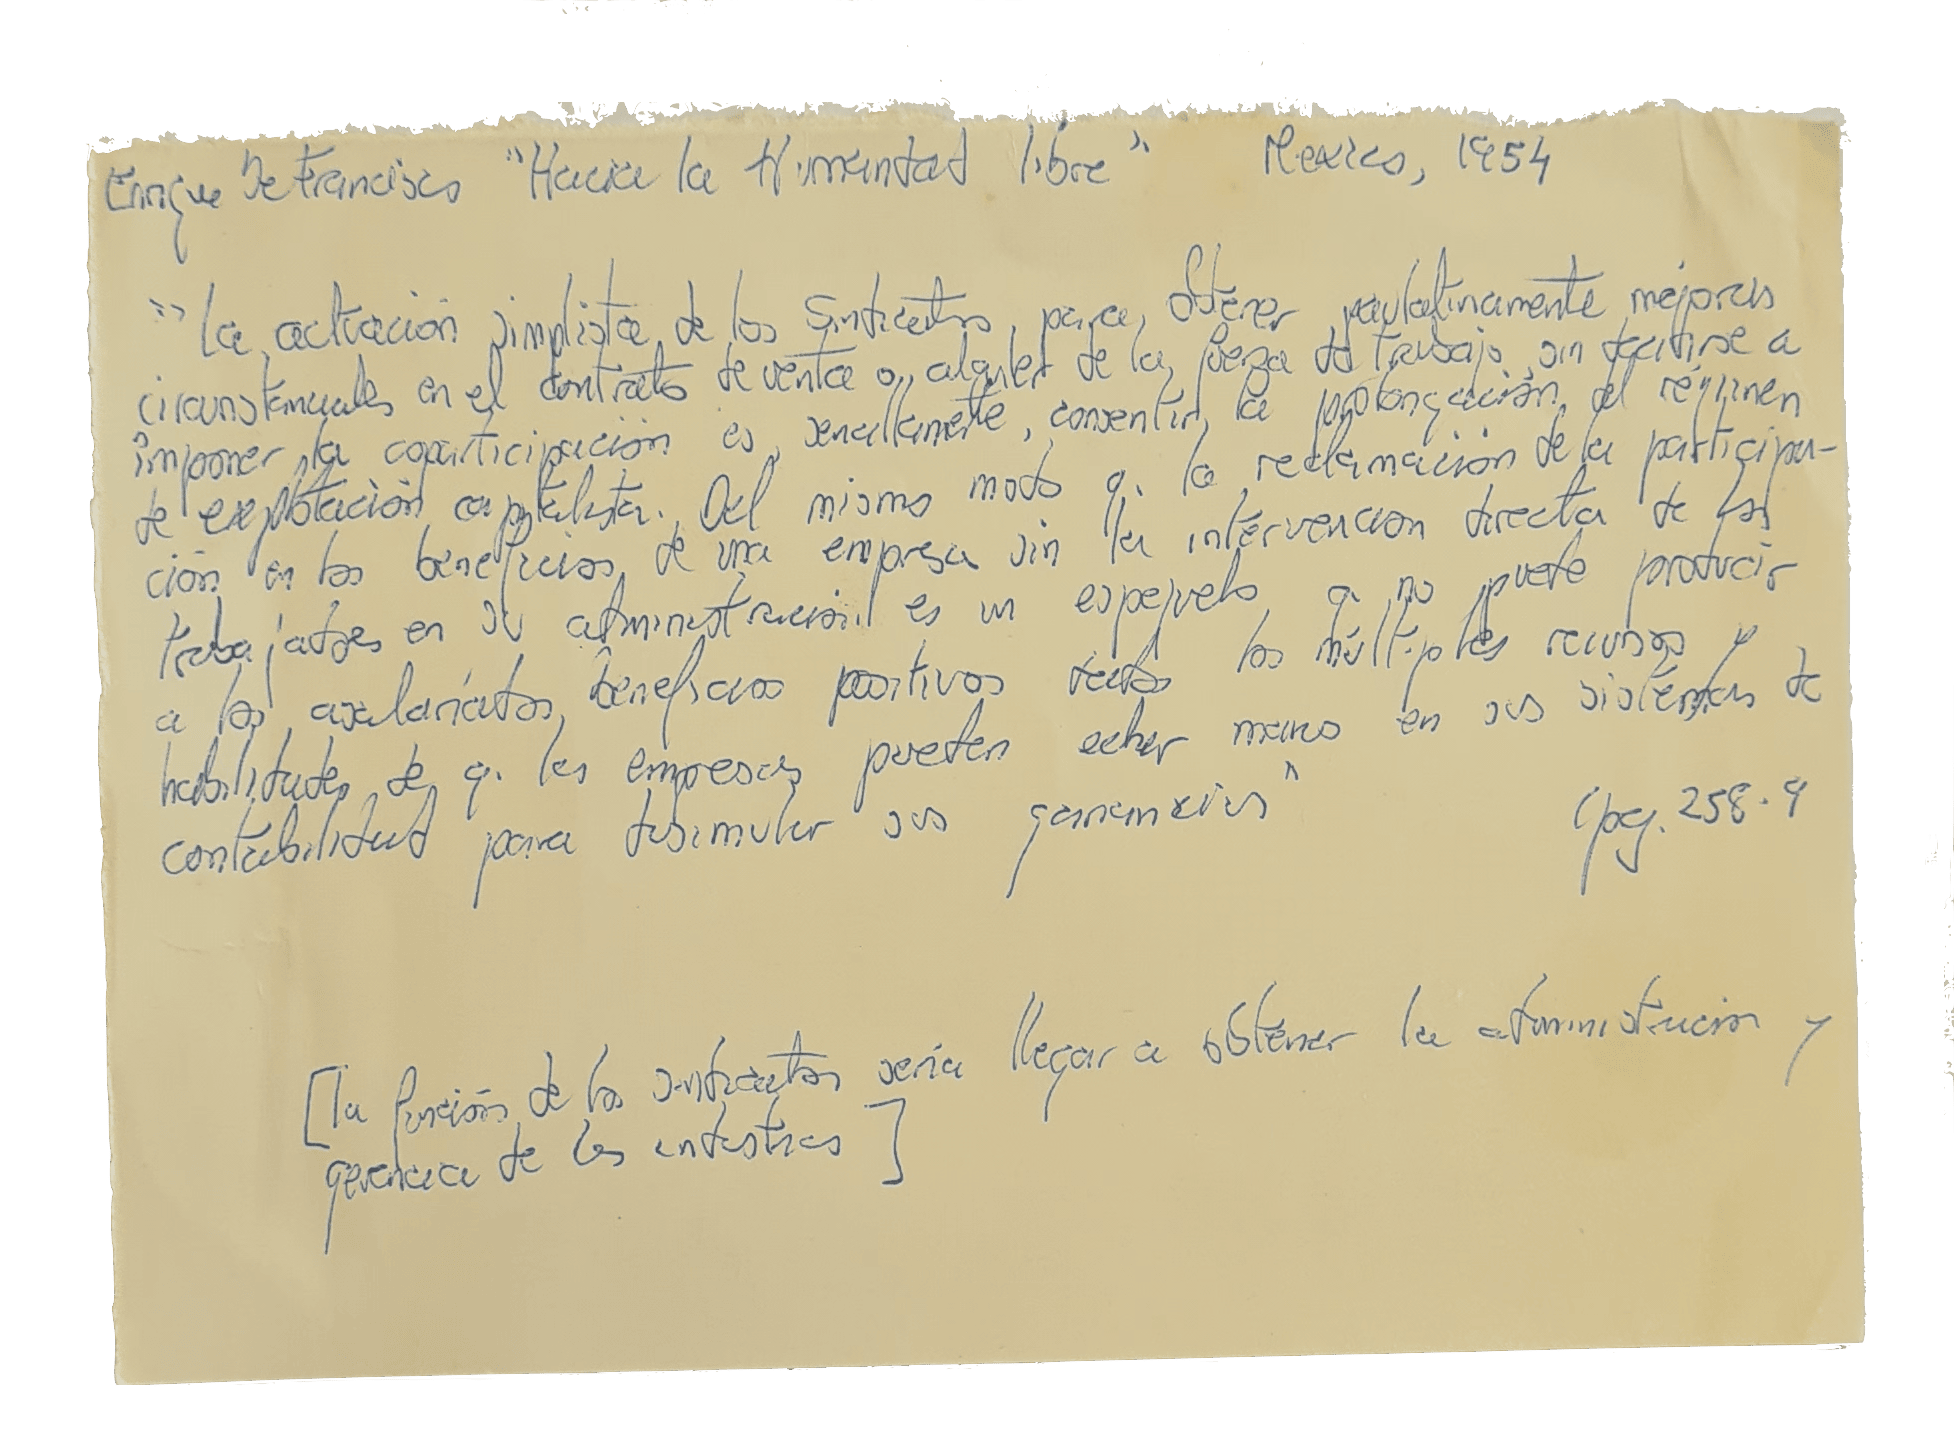 Enrique De Francisco "Hacia la Humanidad libre" Mexico, 1954
"La actuación simplista de los Sindicatos, para obtener paulatinamente mejoras
circunstanciales en el contrato de venta o alquiler de la fuerza de trabajo, sin decidirse a
imponer la coparticipación es, sencillamente, consentir la prolongación del régimen
de explotación capitalista. Del mismo modo q. la reclamación de la participa-
ción en los beneficios de una empresa sin la intervencion directa de los
trabajadores en su administración es un espejuelo q no puede producir
a los asalariados beneficios positivos dados los múltiples recursos y
habilidades de q. las empresas pueden echar mano en sus sistemas de
contabilidad para disimular sus ganancias"
(pg. 258-9
[la función de los sindicatos seria llegar a obtener la administracion y
gerencia de las industrias]